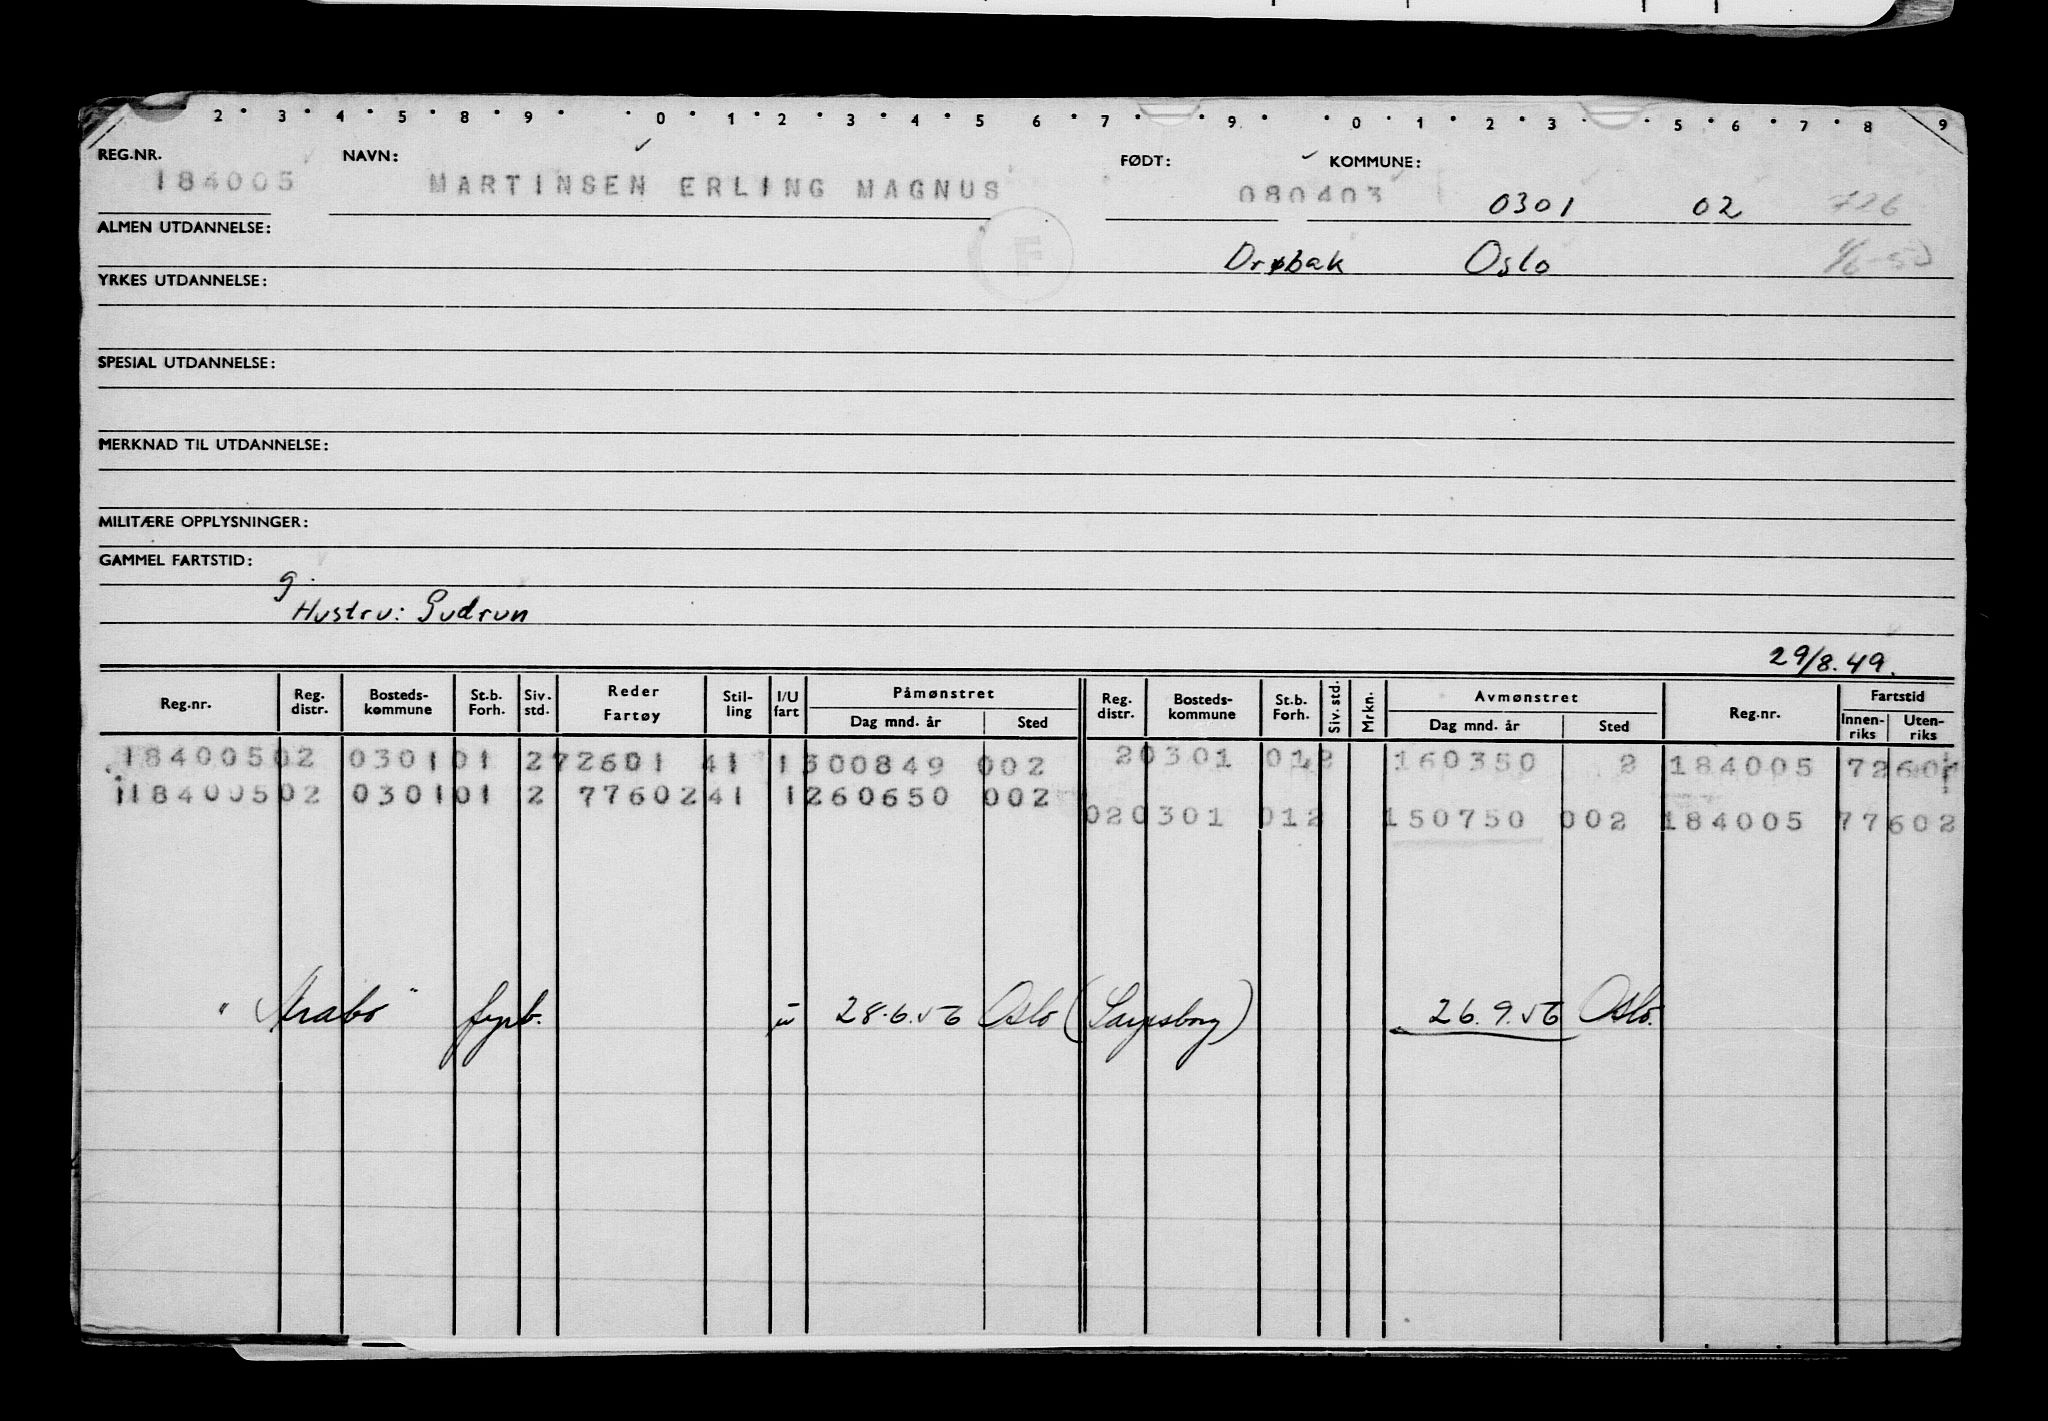 2 · 3 · 4 · 5 · 8 · 9 · · 0 · 1 · 2 · 3 · 4 · 5 6 · 7 · 9 · · 0 · 1 · 2 · 3 · 5 · 6 · 7 · 8 9
REG.NR. NAVN: FØDT: KOMMUNE:
184005 MARTINSEN ERLING MAGNUS 080403 0301 02 726
ALMEN UTDANNELSE:
F Drøbak Oslo
YRKES UTDANNELSE:
SPESIAL UTDANNELSE:
MERKNAD TIL UTDANNELSE:
MILITÆRE OPPLYSNINGER:
GAMMEL FARTSTID:
g.
Hustru: Gudrun
29/8.49.
Reg.nr. Reg. distr. Bosteds-kommune St.b. Forh. Siv. std. Reder Fartøy Stil-ling I/U fart Påmønstret Dag mnd. år Sted Reg. distr. Bosteds-kommune St.b. Forh. Siv. std. Mrkn. Avmønstret Dag mnd. år Sted Reg.nr. Fartstid Innen-riks Uten-riks
184005 02 0301 01 2 72601 41 1 300849 002 2 0301 012 160350 2 184005 72601
184005 02 0301 01 2 77602 41 1 260650 002
02 0301 012 150750 002 184005 77602
"Arabo" fyrb. u 28.6.56 Oslo (Sarpsborg) 26.9.56 Oslo.